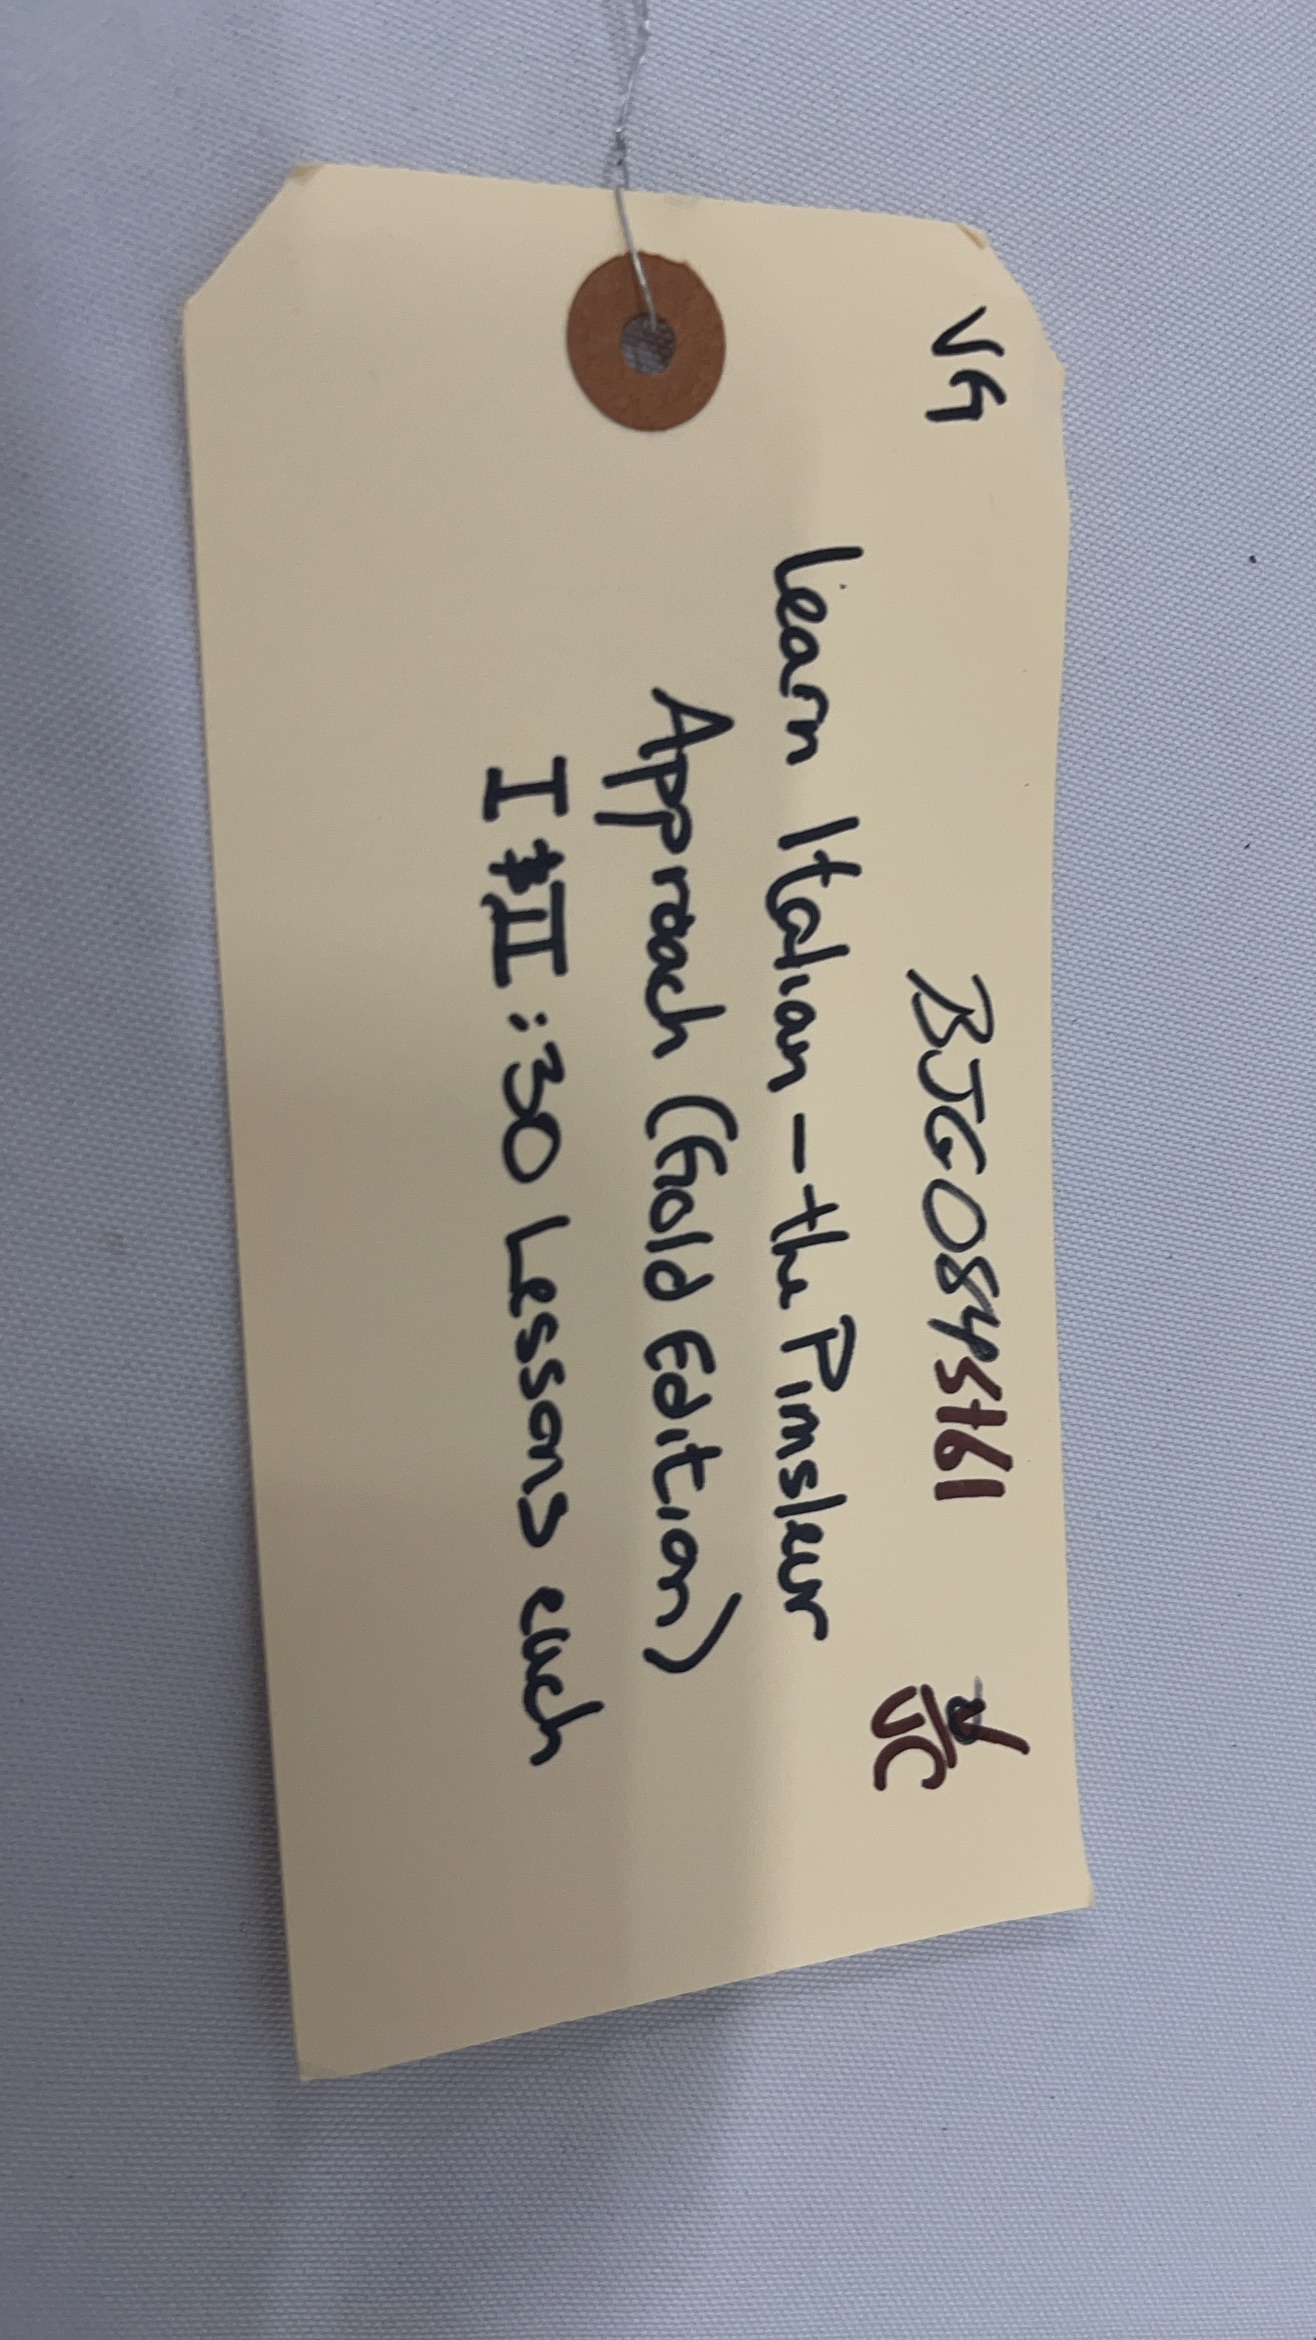 VG
BJG0845461
Learn Italian - the Pimsleur
Approach (Gold Edition)
I & II : 30 Lessons each